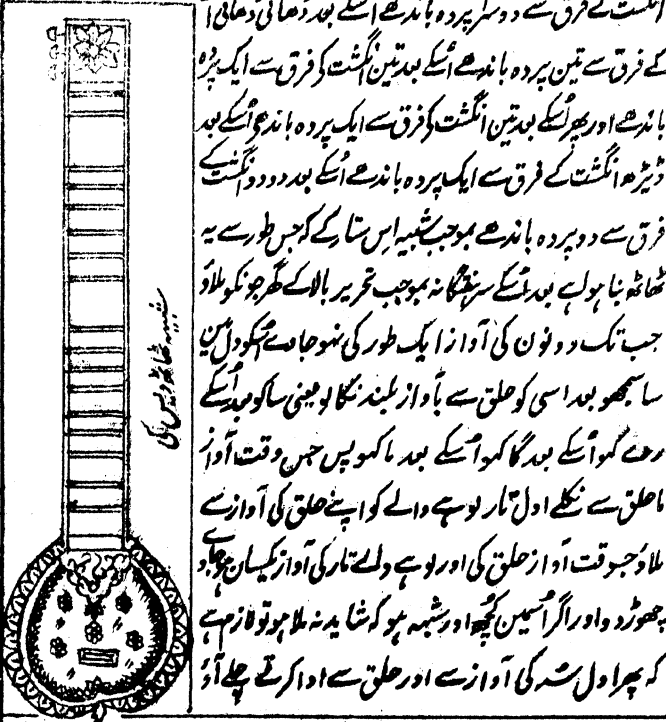 انگشت کے فرق سے دوسرا پردہ باندھے اسکے بعد ڈھائی ڈھائی
کے فرق سے تین پردہ باندھے اُسکے بعد تین انگشت کے فرق سے ایک پردہ
باندھے اور پھر اُسکے بعد تین انگشت کے فرق سے ایک پردہ باندھے اُسکے بعد
ڈیڑھ انگشت کے فرق سے ایک پردہ باندھے اُسکے بعد دو دو انگشت کے
فرق سے دو پردہ باندھے بموجب شبیہ اِس ستار کے کہ جس طور سے یہ
ٹھاٹھ بنا ہوا ہے بعد اُسکے بموجب تحریر بالا کے گھرجونکو ملاؤ
جب تک دونون کی آواز ایک طور کی نہوجاوے اُسکو دل مین
سا سمجھو بعد اسی کو حلق سے بآواز بلند نکالو یعنی سا کو بعد اُسکے
رے کہو اُسکے بعد گا کہو اُسکے بعد ما کہو پس جس وقت آواز
ما حلق سے نکلے اول تار لوہے والے کو اپنے حلق کی آواز سے
ملاؤ جسوقت آواز حلق کی اور لوہے والے تار کی آواز یکسان ہوجاوے
چھوڑ دو اور اگر اُسمین کچھ اور شبہہ ہو کہ شاید نہ ملا ہو تو لازم ہے
کہ پھر اول سُر کی آواز سے اور حلق سے ادا کرتے چلے آؤ
شبیہ ٹھاٹھ دیس کی